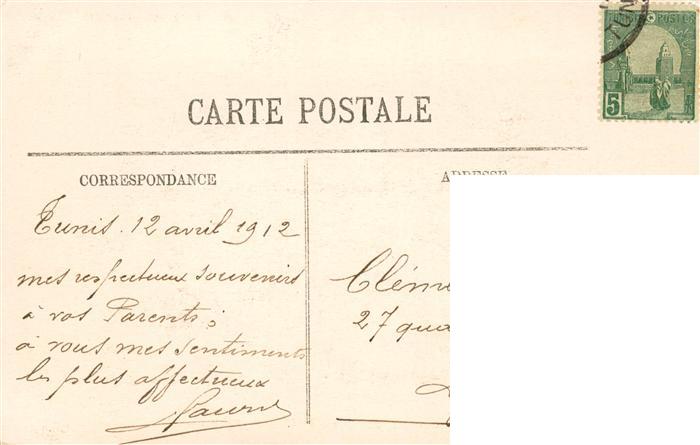 TUN
POSTES
5
CARTE POSTALE
CORRESPONDANCE
Tunis. 12 avril 1912
mes respectueux souvenirs
à vos Parents;
à vous mes sentiments
les plus affectueux
Cléme
27 qua